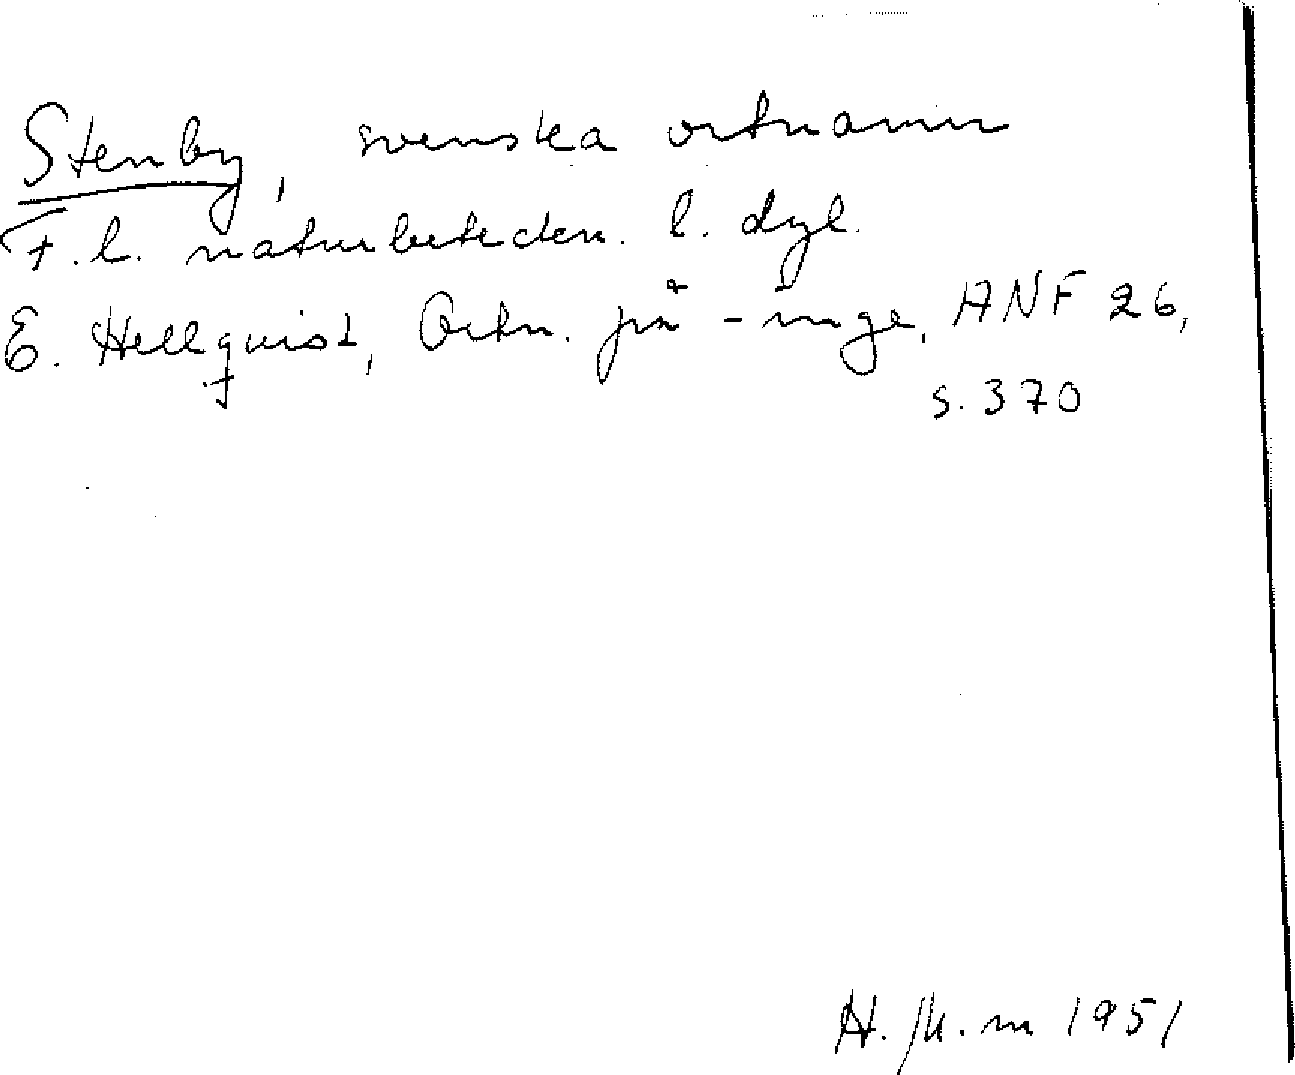 Stenby, svenska ortnamn
F.l. naturbeteckn. l. dyl.
E. Hellquist, Ortn. på -inge, ANF 26,
s. 370
1951